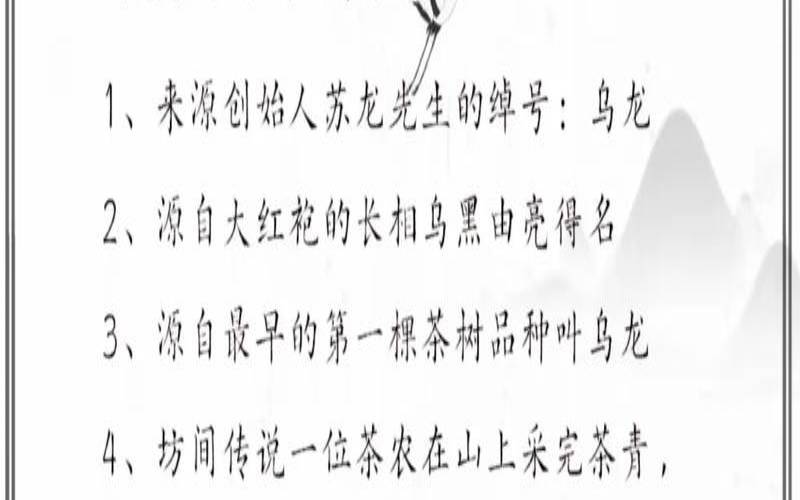 1、来源创始人苏龙先生的绰号：乌龙
2、源自大红袍的长相乌黑由亮得名
3、源自最早的第一棵茶树品种叫乌龙
4、坊间传说一位茶农在山上采完茶青，